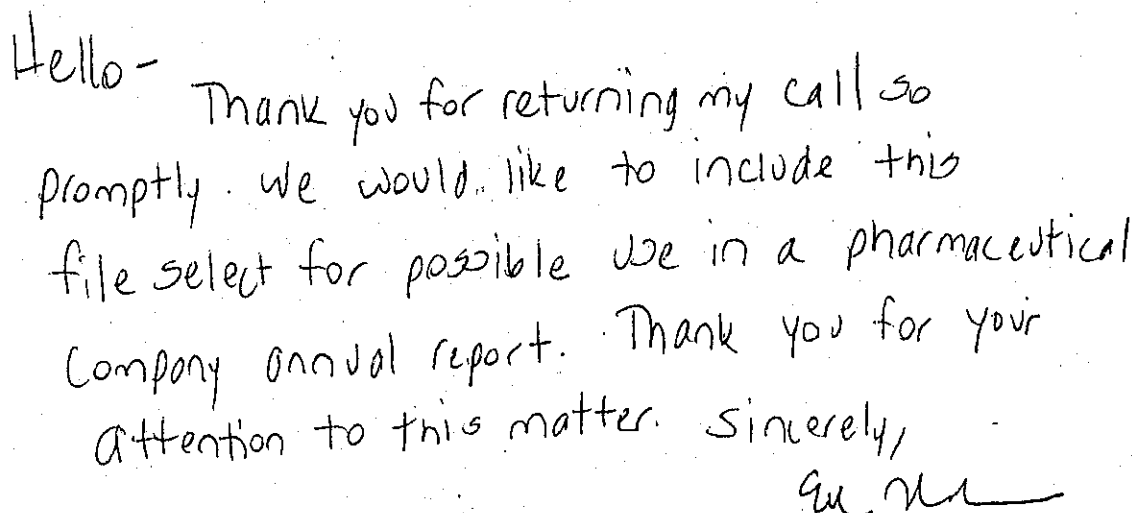 Hello-
Thank you for returning my call so
promptly. We would like to include this
file select for possible use in a pharmaceutical
company annual report. Thank you for your
attention to this matter. Sincerely,